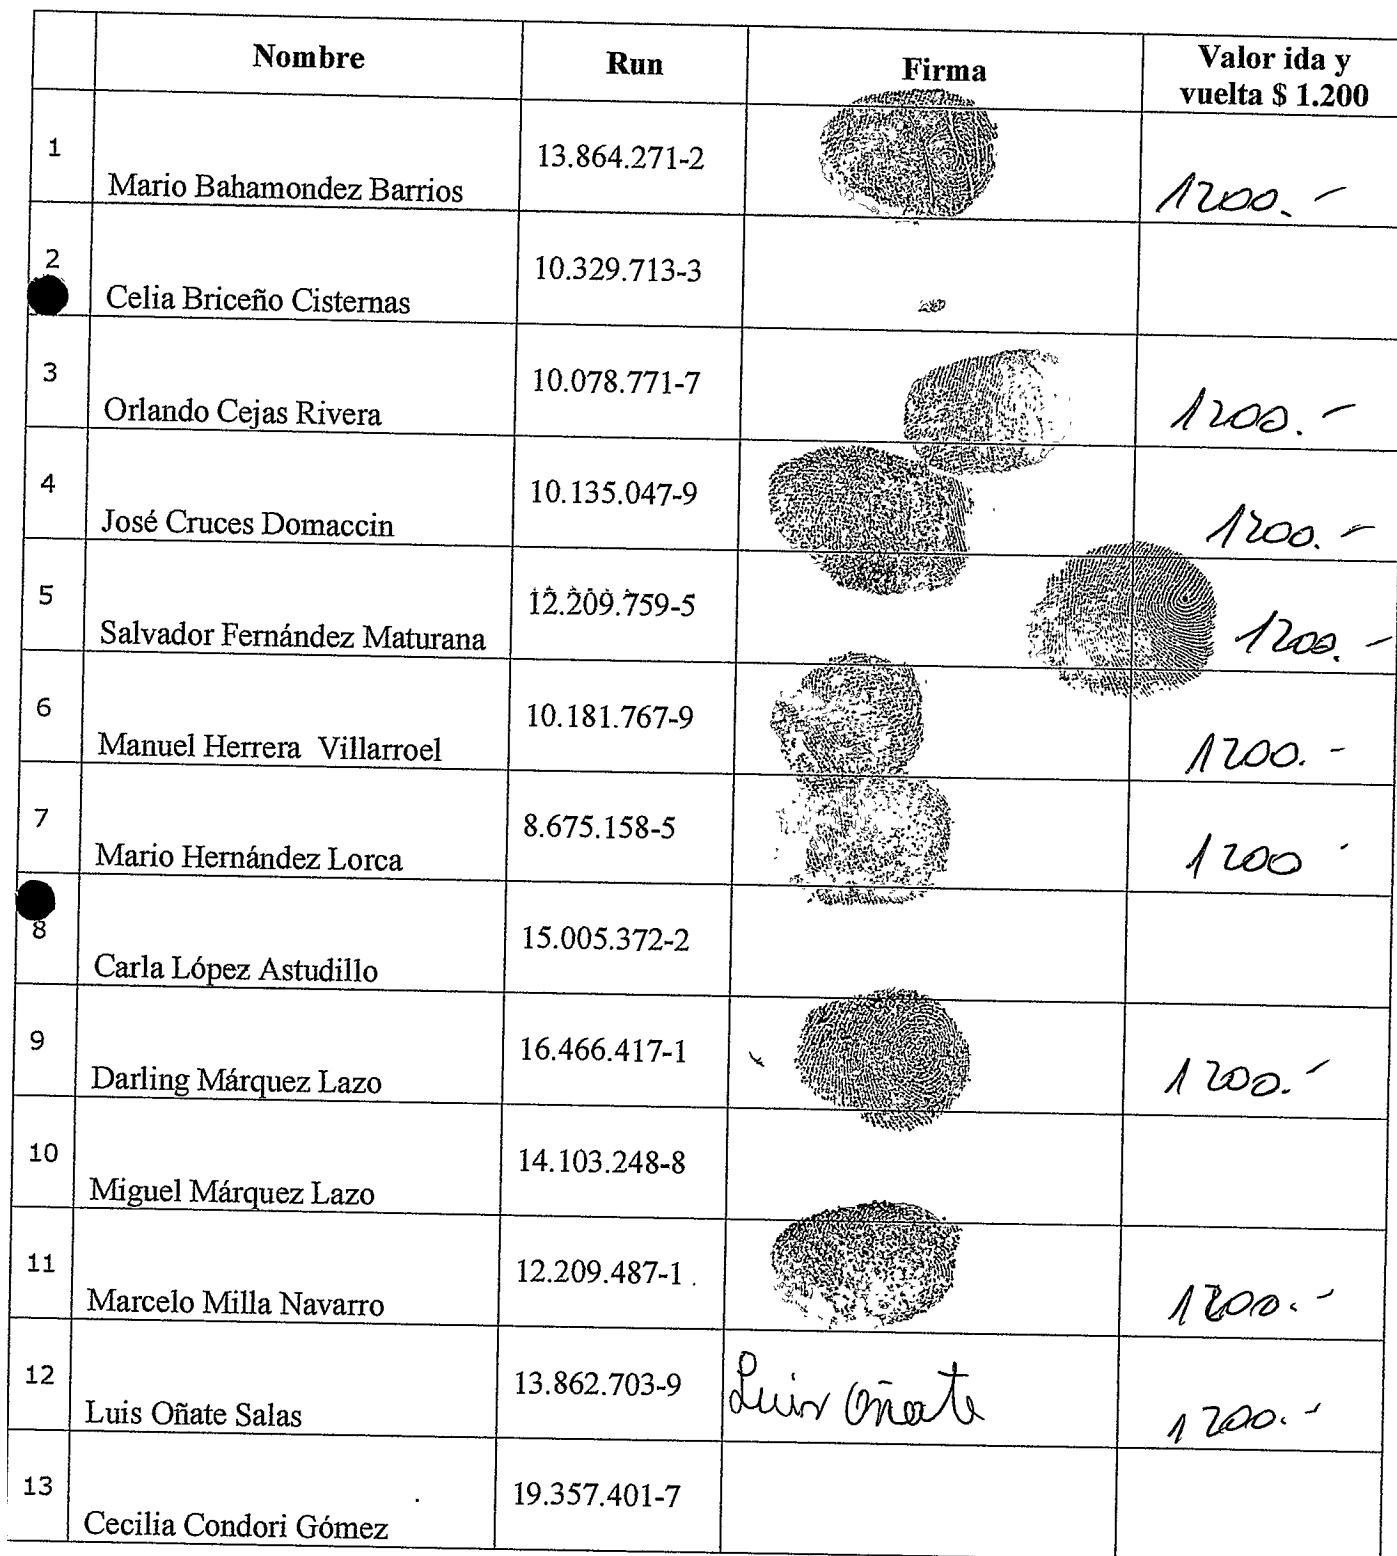 Nombre Run Firma Valor ida y
vuelta $ 1.200
1 Mario Bahamondez Barrios 13.864.271-2 1200.-
2 Celia Briceño Cisternas 10.329.713-3
3 Orlando Cejas Rivera 10.078.771-7 1200.-
4 José Cruces Domaccin 10.135.047-9 1200.-
5 Salvador Fernández Maturana 12.209.759-5 1200.-
6 Manuel Herrera Villarroel 10.181.767-9 1200.-
7 Mario Hernández Lorca 8.675.158-5 1200
8 Carla López Astudillo 15.005.372-2
9 Darling Márquez Lazo 16.466.417-1 1200.-
10 Miguel Márquez Lazo 14.103.248-8
11 Marcelo Milla Navarro 12.209.487-1 1200.-
12 Luis Oñate Salas 13.862.703-9 Luis Oñate 1200.-
13 Cecilia Condori Gómez 19.357.401-7